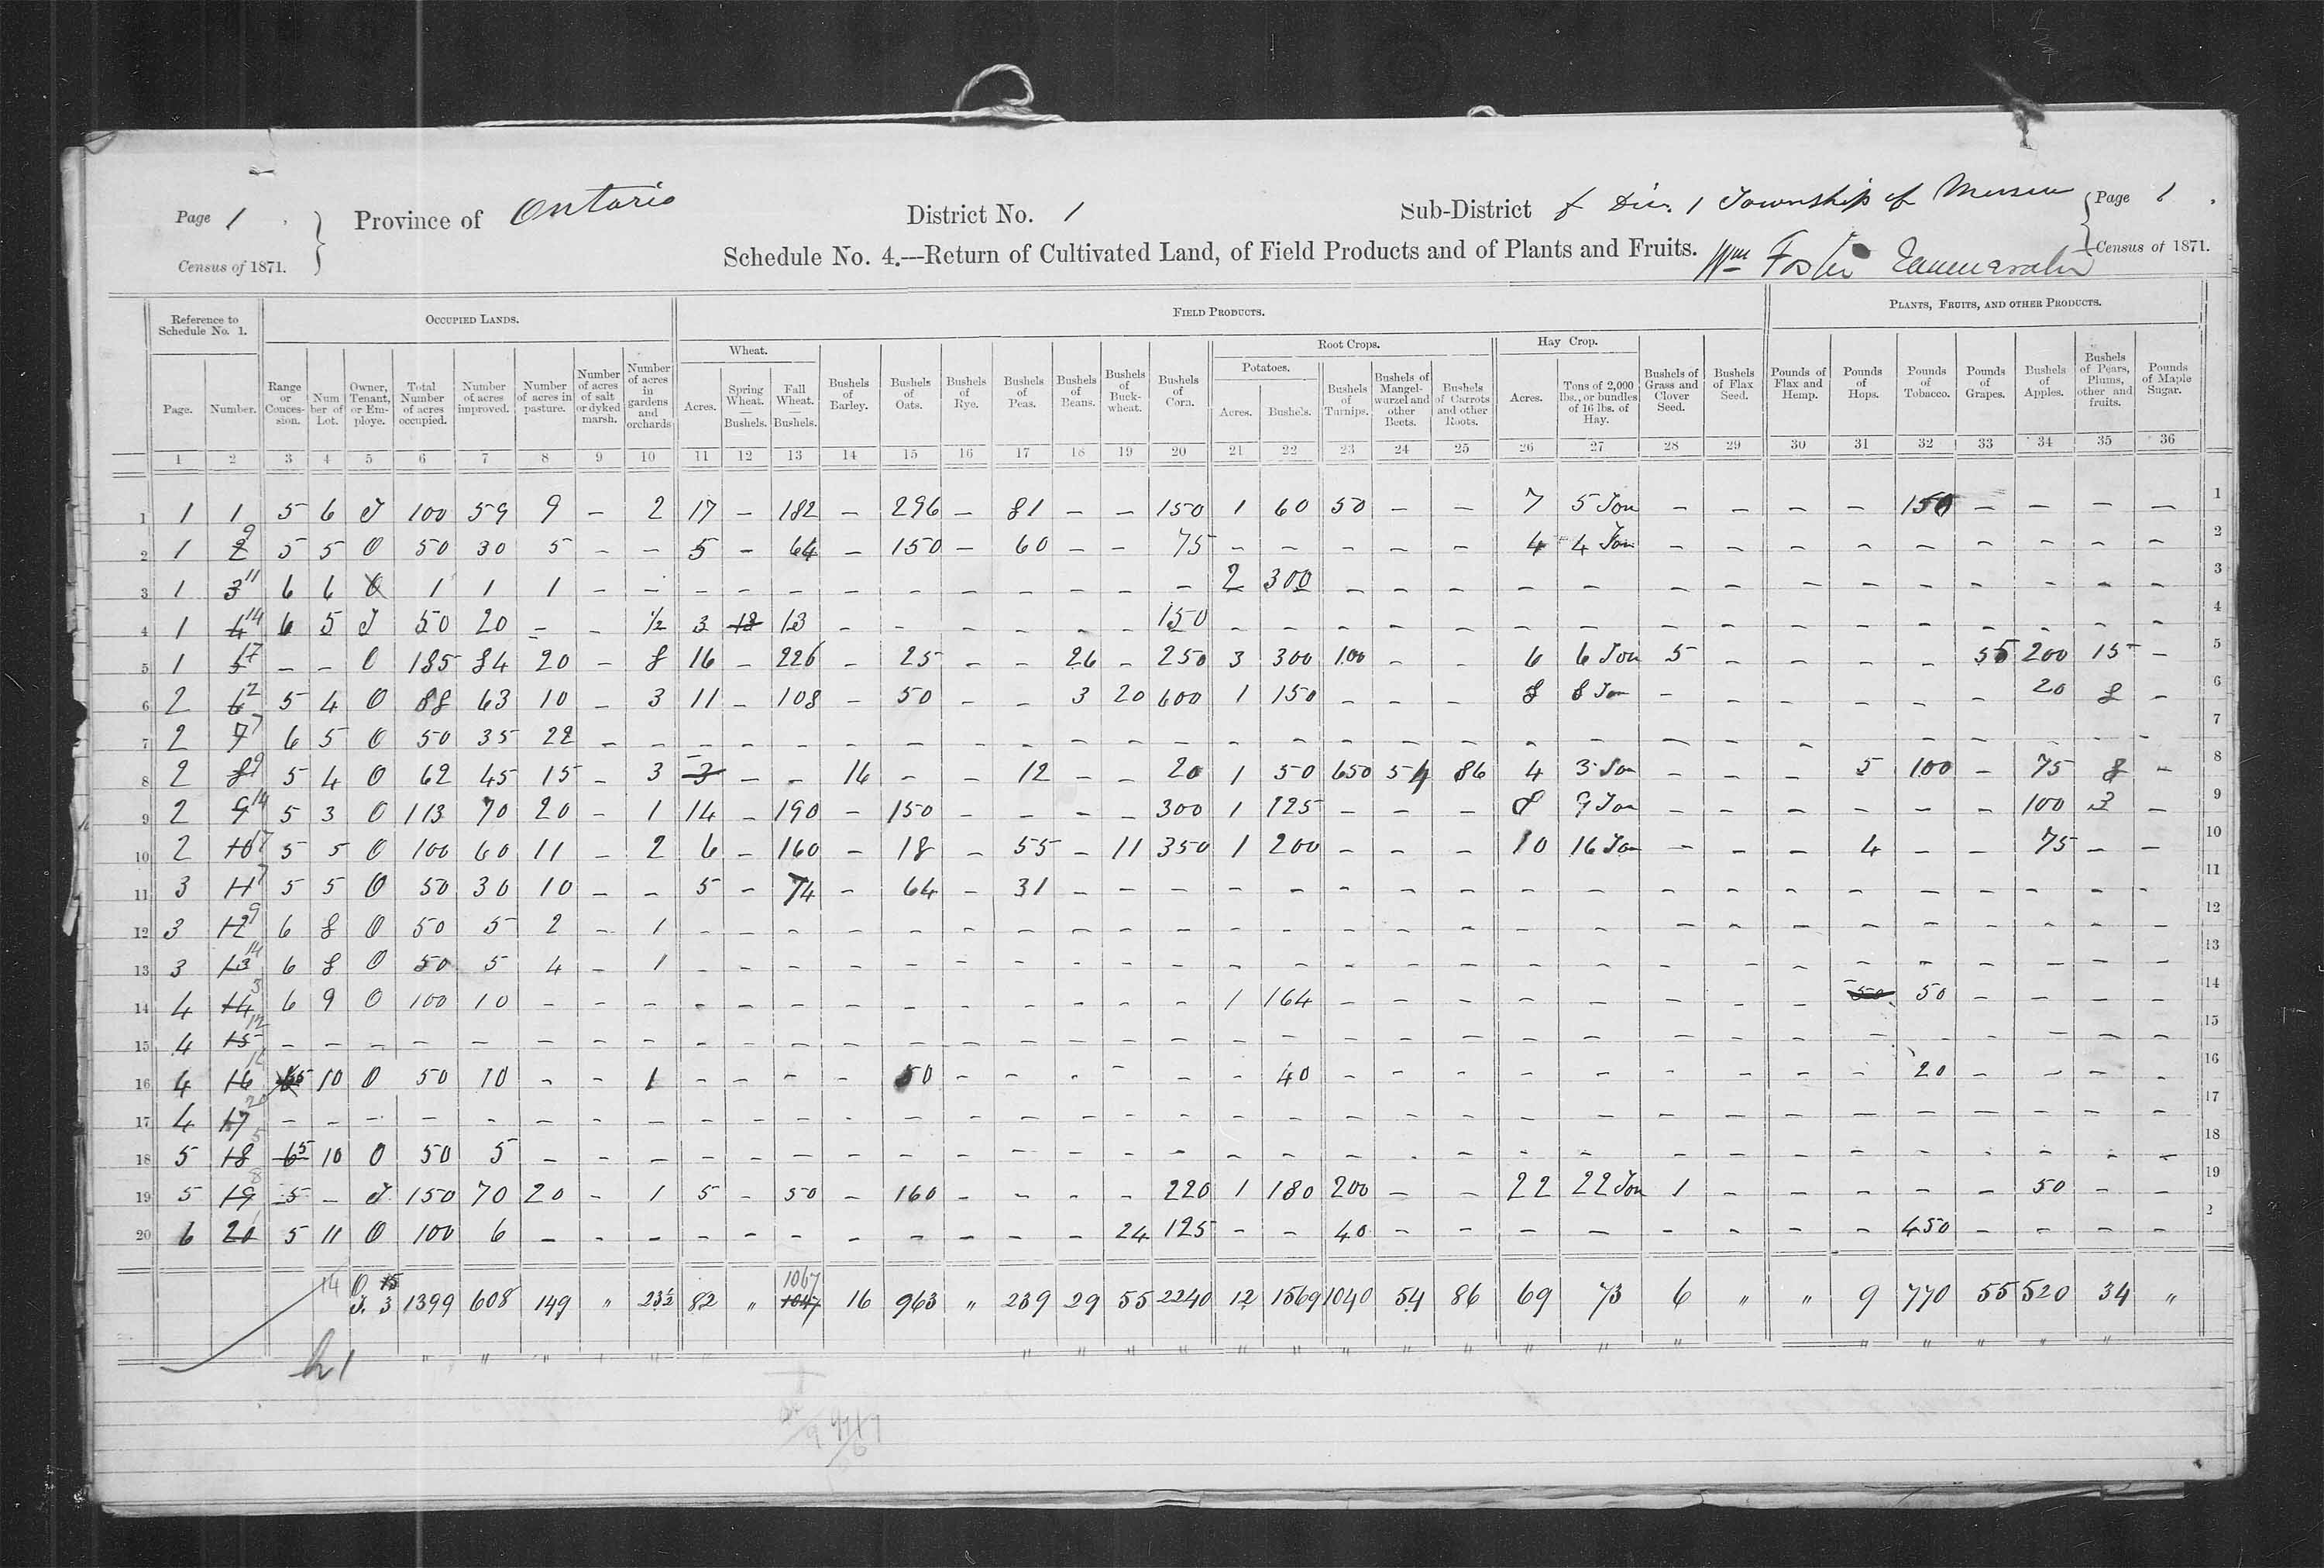 Page 1 Province of Ontario District No. 1 Sub-District f Div. 1 Township of Mersea Page 1
Census of 1871. Schedule No. 4.—Return of Cultivated Land, of Field Products and of Plants and Fruits. Wm Foster Enumerator Census of 1871.
Reference to Schedule No. 1. OCCUPIED LANDS. FIELD PRODUCTS. PLANTS, FRUITS, AND OTHER PRODUCTS.
Wheat. Root Crops. Hay Crop.
Potatoes.
Page. Number. Range or Conces-sion. Num ber of Lot. Owner, Tenant, or Em-ploye. Total Number of acres occupied. Number of acres improved. Number of acres in pasture. Number of acres of salt or dyked marsh. Number of acres in gardens and orchards Acres. Spring Wheat. — Bushels. Fall Wheat. — Bushels. Bushels of Barley. Bushels of Oats. Bushels of Rye. Bushels of Peas. Bushels of Beans. Bushels of Buck-wheat. Bushels of Corn. Acres. Bushels. Bushels of Turnips. Bushels of Mangel-wurzel and other Beets. Bushels of Carrots and other Roots. Acres. Tons of 2,000 lbs., or bundles of 16 lbs. of Hay. Bushels of Grass and Clover Seed. Bushels of Flax Seed. Pounds of Flax and Hemp. Pounds of Hops. Pounds of Tobacco. Pounds of Grapes. Bushels of Apples. Bushels of Pears, Plums, other and fruits. Pounds of Maple Sugar.
1 2 3 4 5 6 7 8 9 10 11 12 13 14 15 16 17 18 19 20 21 22 23 24 25 26 27 28 29 30 31 32 33 34 35 36
1 1 1 5 6 T 100 59 9 – 2 17 – 182 – 296 – 81 – – 150 1 60 50 – – 7 5 Ton – – – – 150 – – – – 1
2 1 2 9 5 5 O 50 30 5 – – 5 – 64 – 150 – 60 – – 75 – – – – – 4 4 Ton – – – – – – – – – 2
3 1 3 11 6 6 O 1 1 1 – – – – – – – – – – – – 2 300 – – – – – – – – – – – – – – 3
4 1 4 14 6 5 T 50 20 – – ½ 3 18 13 – – – – – – 150 – – – – – – – – – – – – – – – – 4
5 1 5 17 – – O 185 84 20 – 8 16 – 226 – 25 – – 26 – 250 3 300 100 – – 6 6 Ton 5 – – – – 55 200 15 – 5
6 2 6 2 5 4 O 88 63 10 – 3 11 – 108 – 50 – – 3 20 600 1 150 – – – 8 8 Ton – – – – – – 20 8 – 6
7 2 7 7 6 5 O 50 35 22 – – – – – – – – – – – – – – – – – – – – – – – – – – – – 7
8 2 8 9 5 4 O 62 45 15 – 3 3 – – 16 – – 12 – – 20 1 50 650 54 86 4 3 Ton – – – 5 100 – 75 8 – 8
9 2 9 14 5 3 O 113 70 20 – 1 14 – 190 – 150 – – – – 300 1 125 – – – 8 9 Ton – – – – – – 100 3 – 9
10 2 10 17 5 5 O 100 60 11 – 2 6 – 160 – 18 – 55 – 11 350 1 200 – – – 10 16 Ton – – – 4 – – 75 – – 10
11 3 11 7 5 5 O 50 30 10 – – 5 – 74 – 64 – 31 – – – – – – – – – – – – – – – – – – – 11
12 3 12 9 6 8 O 50 5 2 – 1 – – – – – – – – – – – – – – – – – – – – – – – – – – 12
13 3 13 14 6 8 O 50 5 4 – 1 – – – – – – – – – – – – – – – – – – – – – – – – – – 13
14 4 14 3 6 9 O 100 10 – – – – – – – – – – – – – 1 164 – – – – – – – – 50 50 – – – – 14
15 4 15 12 – – – – – – – – – – – – – – – – – – – – – – – – – – – – – – – – – – 15
16 4 16 6 5 10 O 50 10 – – 1 – – – – 50 – – – – – – 40 – – – – – – – – – 20 – – – – 16
17 4 17 20 – – – – – – – – – – – – – – – – – – – – – – – – – – – – – – – – – – 17
18 5 18 5 6 5 10 O 50 5 – – – – – – – – – – – – – – – – – – – – – – – – – – – – – 18
19 5 19 8 5 – T 150 70 20 – 1 5 – 50 – 160 – – – – 220 1 180 200 – – 22 22 Ton 1 – – – – – 50 – – 19
20 6 20 5 11 O 100 6 – – – – – – – – – – – 24 125 – – 40 – – – – – – – – 450 – – – – 2
14 O. 15 1067
T. 3 1399 608 149 " 23½ 82 " 1047 16 963 " 239 29 55 2240 12 1569 1040 54 86 69 73 6 " " 9 770 55 520 34 "